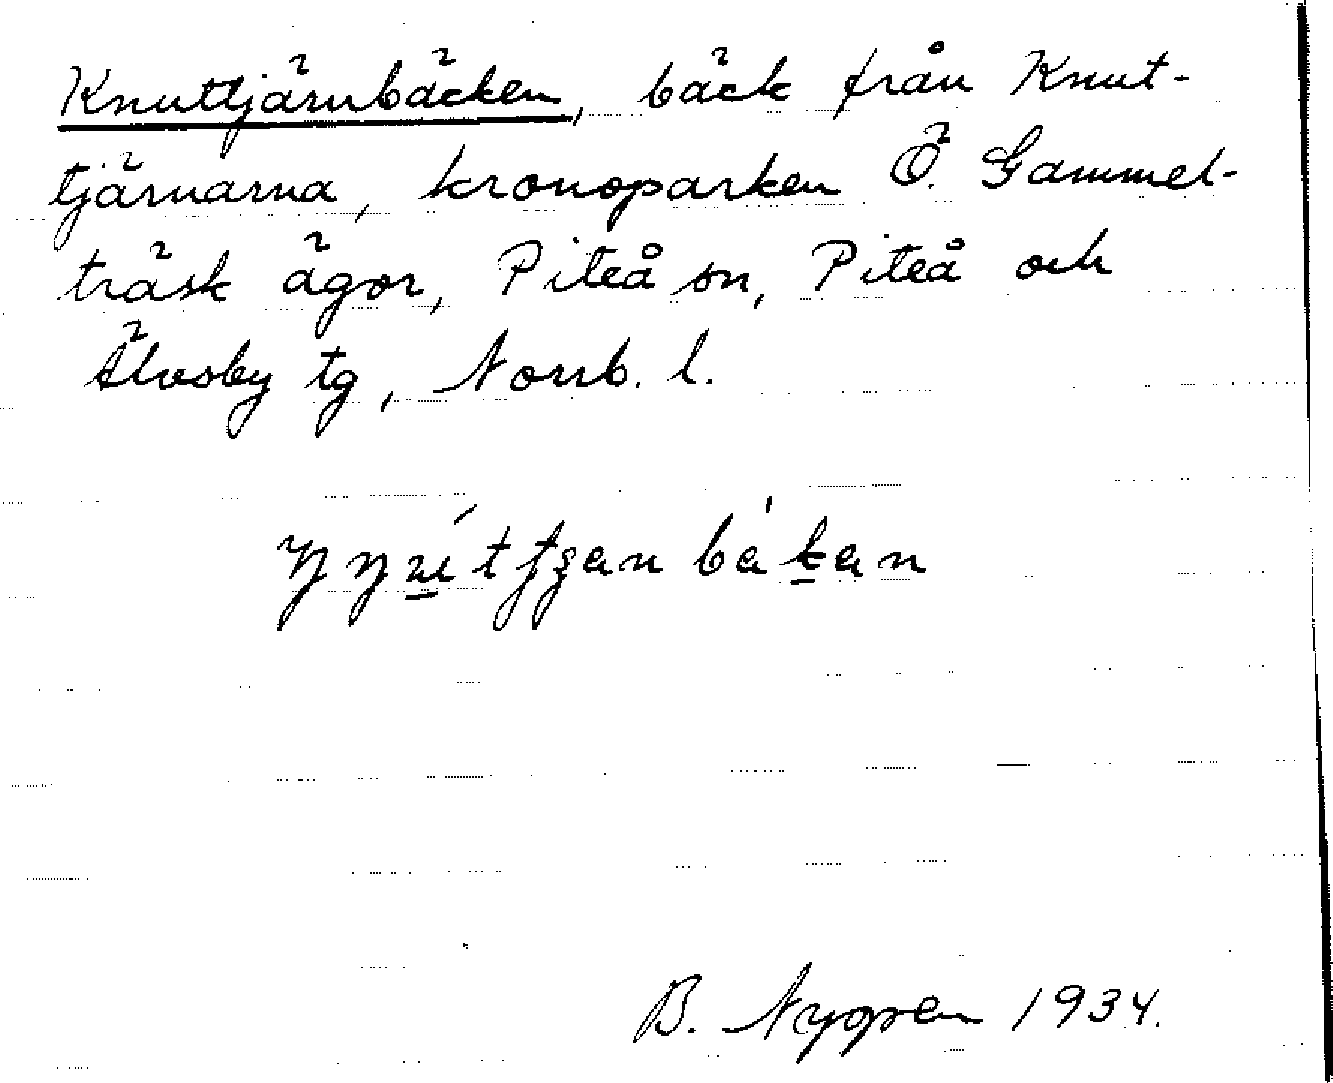 Knuttjärnbäcken, bäck från Knut-
tjärnarna, kronoparken Ö. Gammel-
träsk ägor, Piteå sn, Piteå och
Älvsby tg, Norrb. l.
B. Nygren 1934.